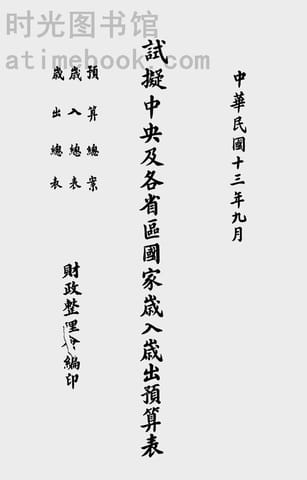 时光图书馆
atimebook.com
中華民國十三年九月
試擬中央及各省區國家歲入歲出預算表
預算總案
歲入總表
歲出總表
財政整理會編印